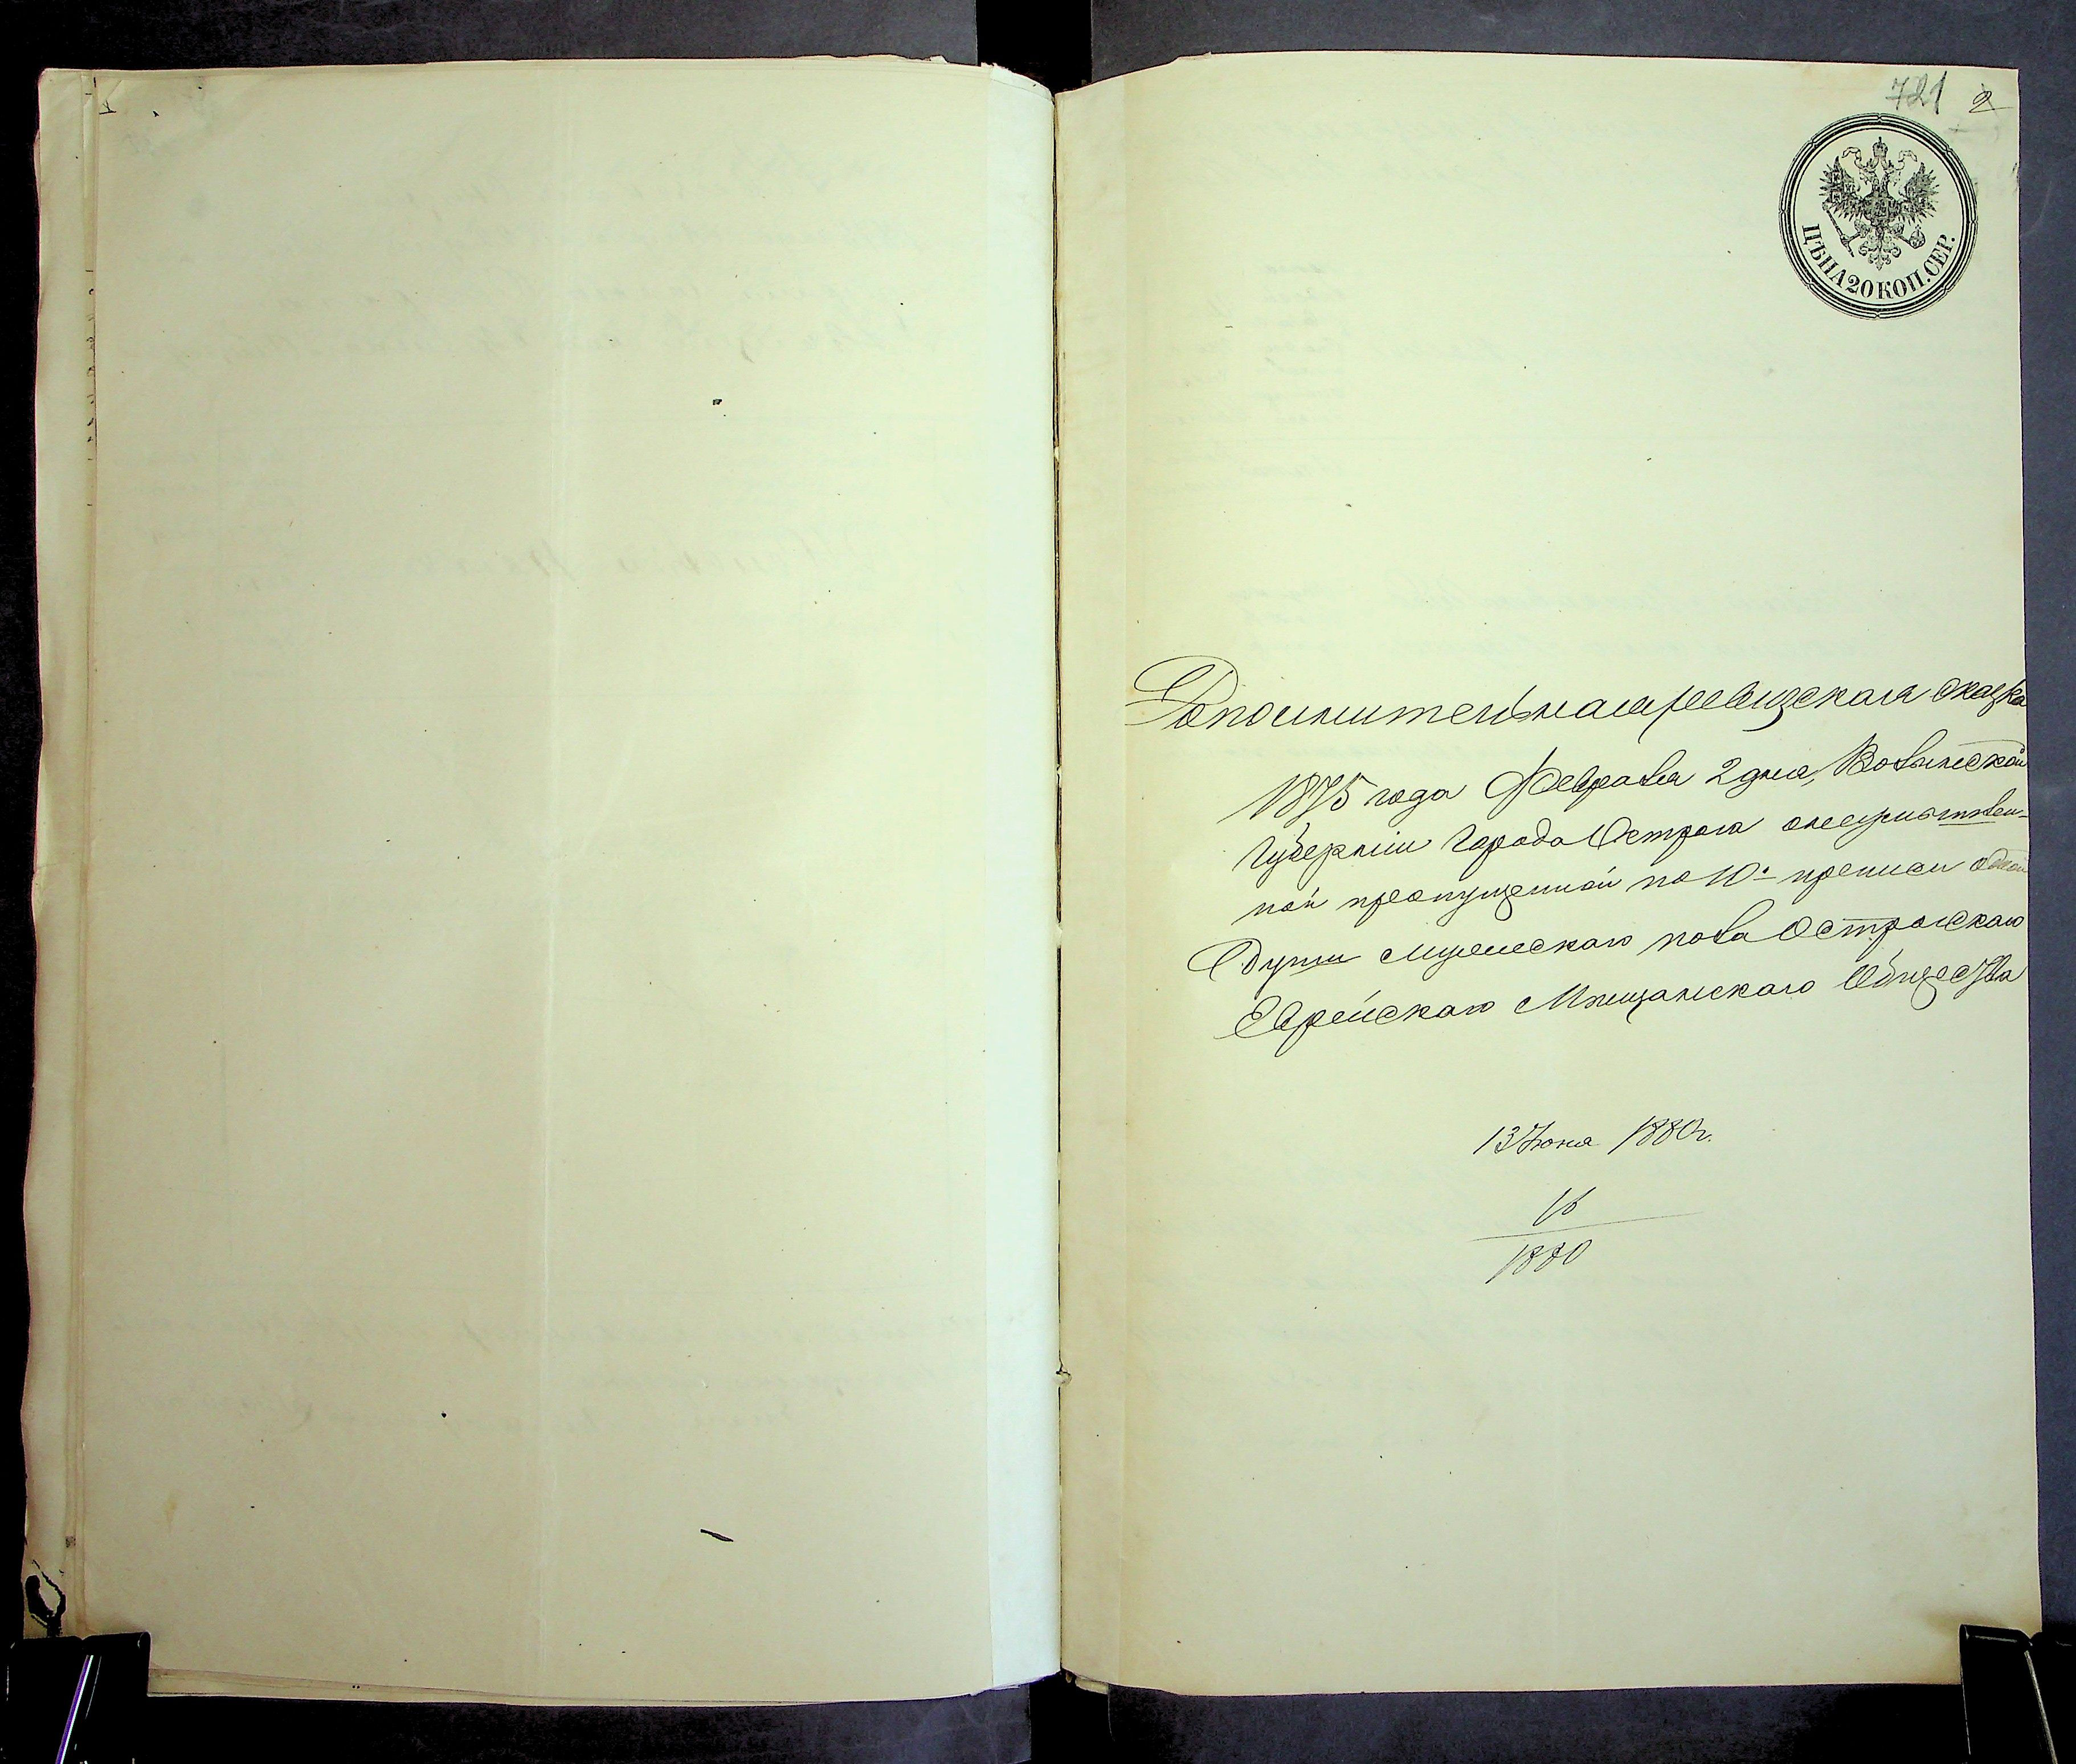 721 2
ЦѢНА 20 КОП. СЕР.
Дополнительная ревизская сказка
1875 года Февраля 2 дня, Волынской
Губернии Города Острога
ной пропущенной по 10й - переписи одной
Души мужескаго пола Острожскаго
Еврейскаго Мѣщанскаго Общества
13 Июня 1880 г.
16
1880